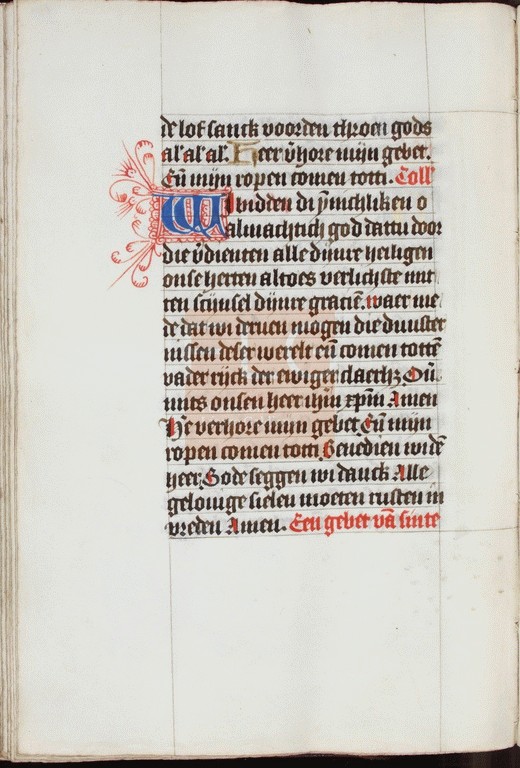 de lof sanck voor den throen gods
al' al' al'. Heer v̄hore mijn gebet.
Eñ mijn ropen comen totti. Coll'
WI bidden di ȳnichliken o
almachtich god dattu door
die v̄dienten alle dijnre heiligen
onse herten altoes verlichste mit
ten scijnsel dijnre graciē. waer me
de dat wi deruen mogen die duuster
nissen deser werelt eñ comen tottē
vader rijck der ewiger claerhz Ou̅.
mits onsen heer ihūm xp̄m Amen
He verhore mijn gebet Eñ mijn
ropen comen totti Benedien wi dē
heer Gode seggen wi danck Alle
gelouige sielen moeten rusten in
vreden Amen. Een gebet vā sinte